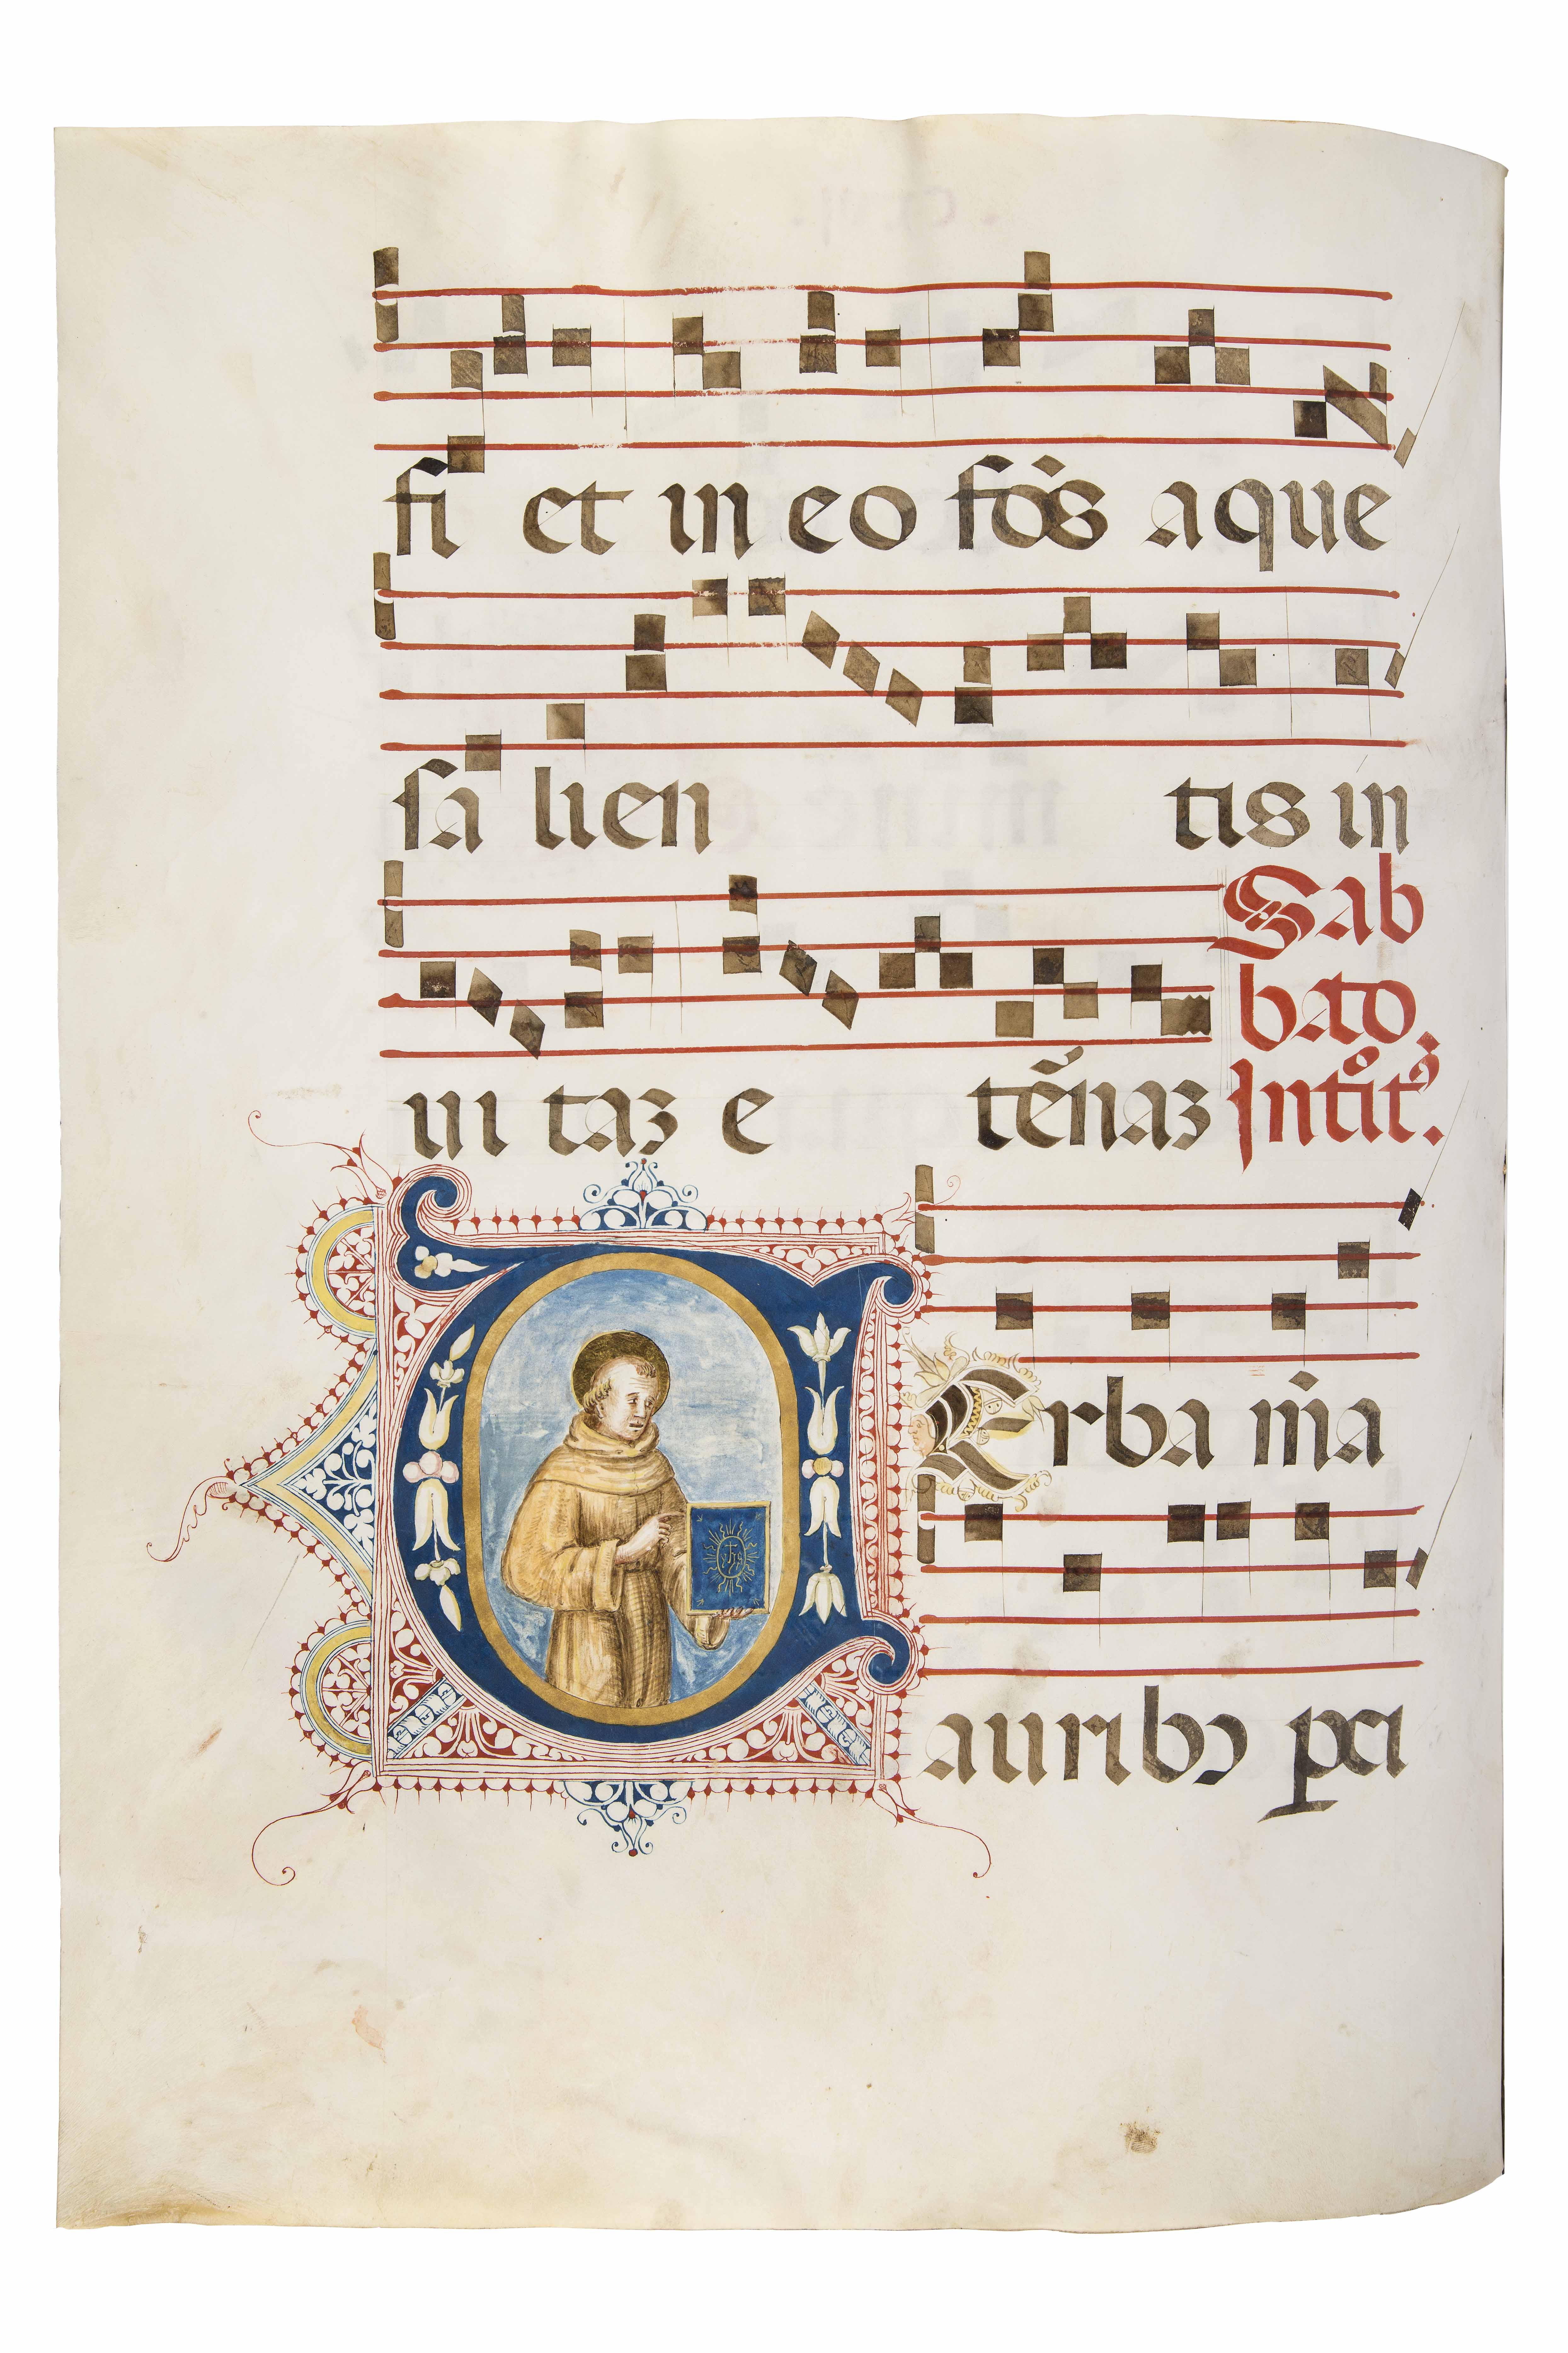 fi et in eo fōs aque
sa lien tis in
ui taʒ e tēnaʒ
Sab
bato
Introitꝰ.
VErba m̄a
auribꝰ ꝑci